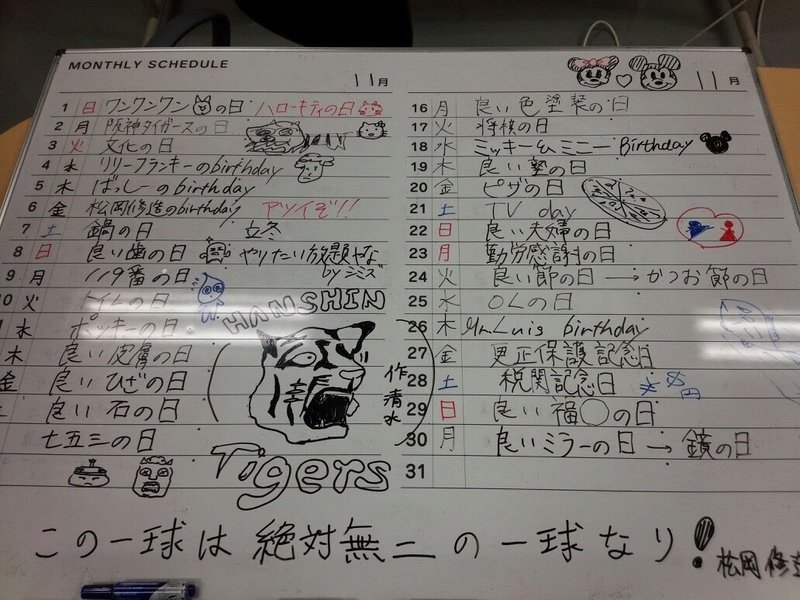 MONTHLY SCHEDULE
11月
11月
1 日 ワンワンワンの日 ハローキティの日
2 月 阪神タイガースの日
3 火 文化の日
4 水 リリーフランキーのbirthday
5 木 ばっしーのbirthday
6 金 松岡修造のbirthday アツイぞ!!
7 土 鍋の日 立冬
8 日 良い歯の日 やりたい放題やな
by シミズ
9 月 119番の日
10 火 トイレの日
HANSHIN
水 ポッキーの日
木 良い皮膚の日
金 良いひざの日
良い石の日
七五三の日
作清水
Tigers
16 月 良い色塗装の日
17 火 将棋の日
18 水 ミッキー&ミニー Birthday
19 木 良い塾の日
20 金 ピザの日
21 土 TV day
22 日 良い夫婦の日
23 月 勤労感謝の日
24 火 良い節の日→かつお節の日
25 水 OLの日
26 木 birthday
27 金 更正保護記念日
28 土 税関記念日 円
29 日 良い福○の日
30 月 良いミラーの日→鏡の日
31
この一球は絶対無二の一球なり!
松岡修